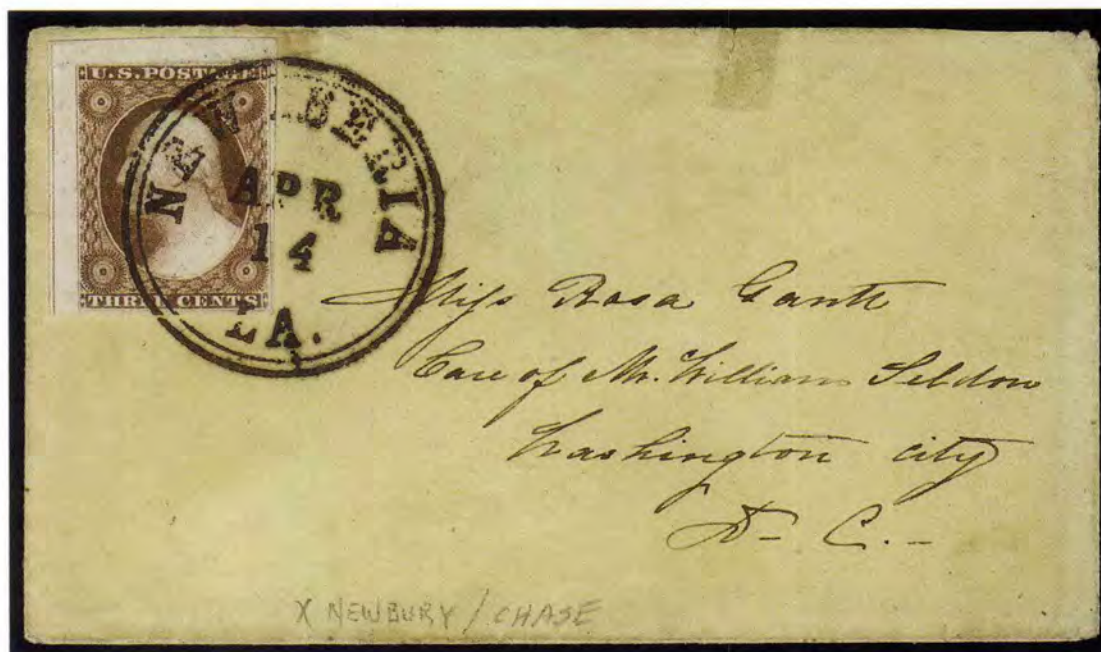 U.S. POSTAGE
THREE CENTS
NEW IBERIA
APR
14
LA.
Miss Rosa Gantt
Care of Mr. William Seldon
Washington city
D- C.-
X NEWBURY / CHASE